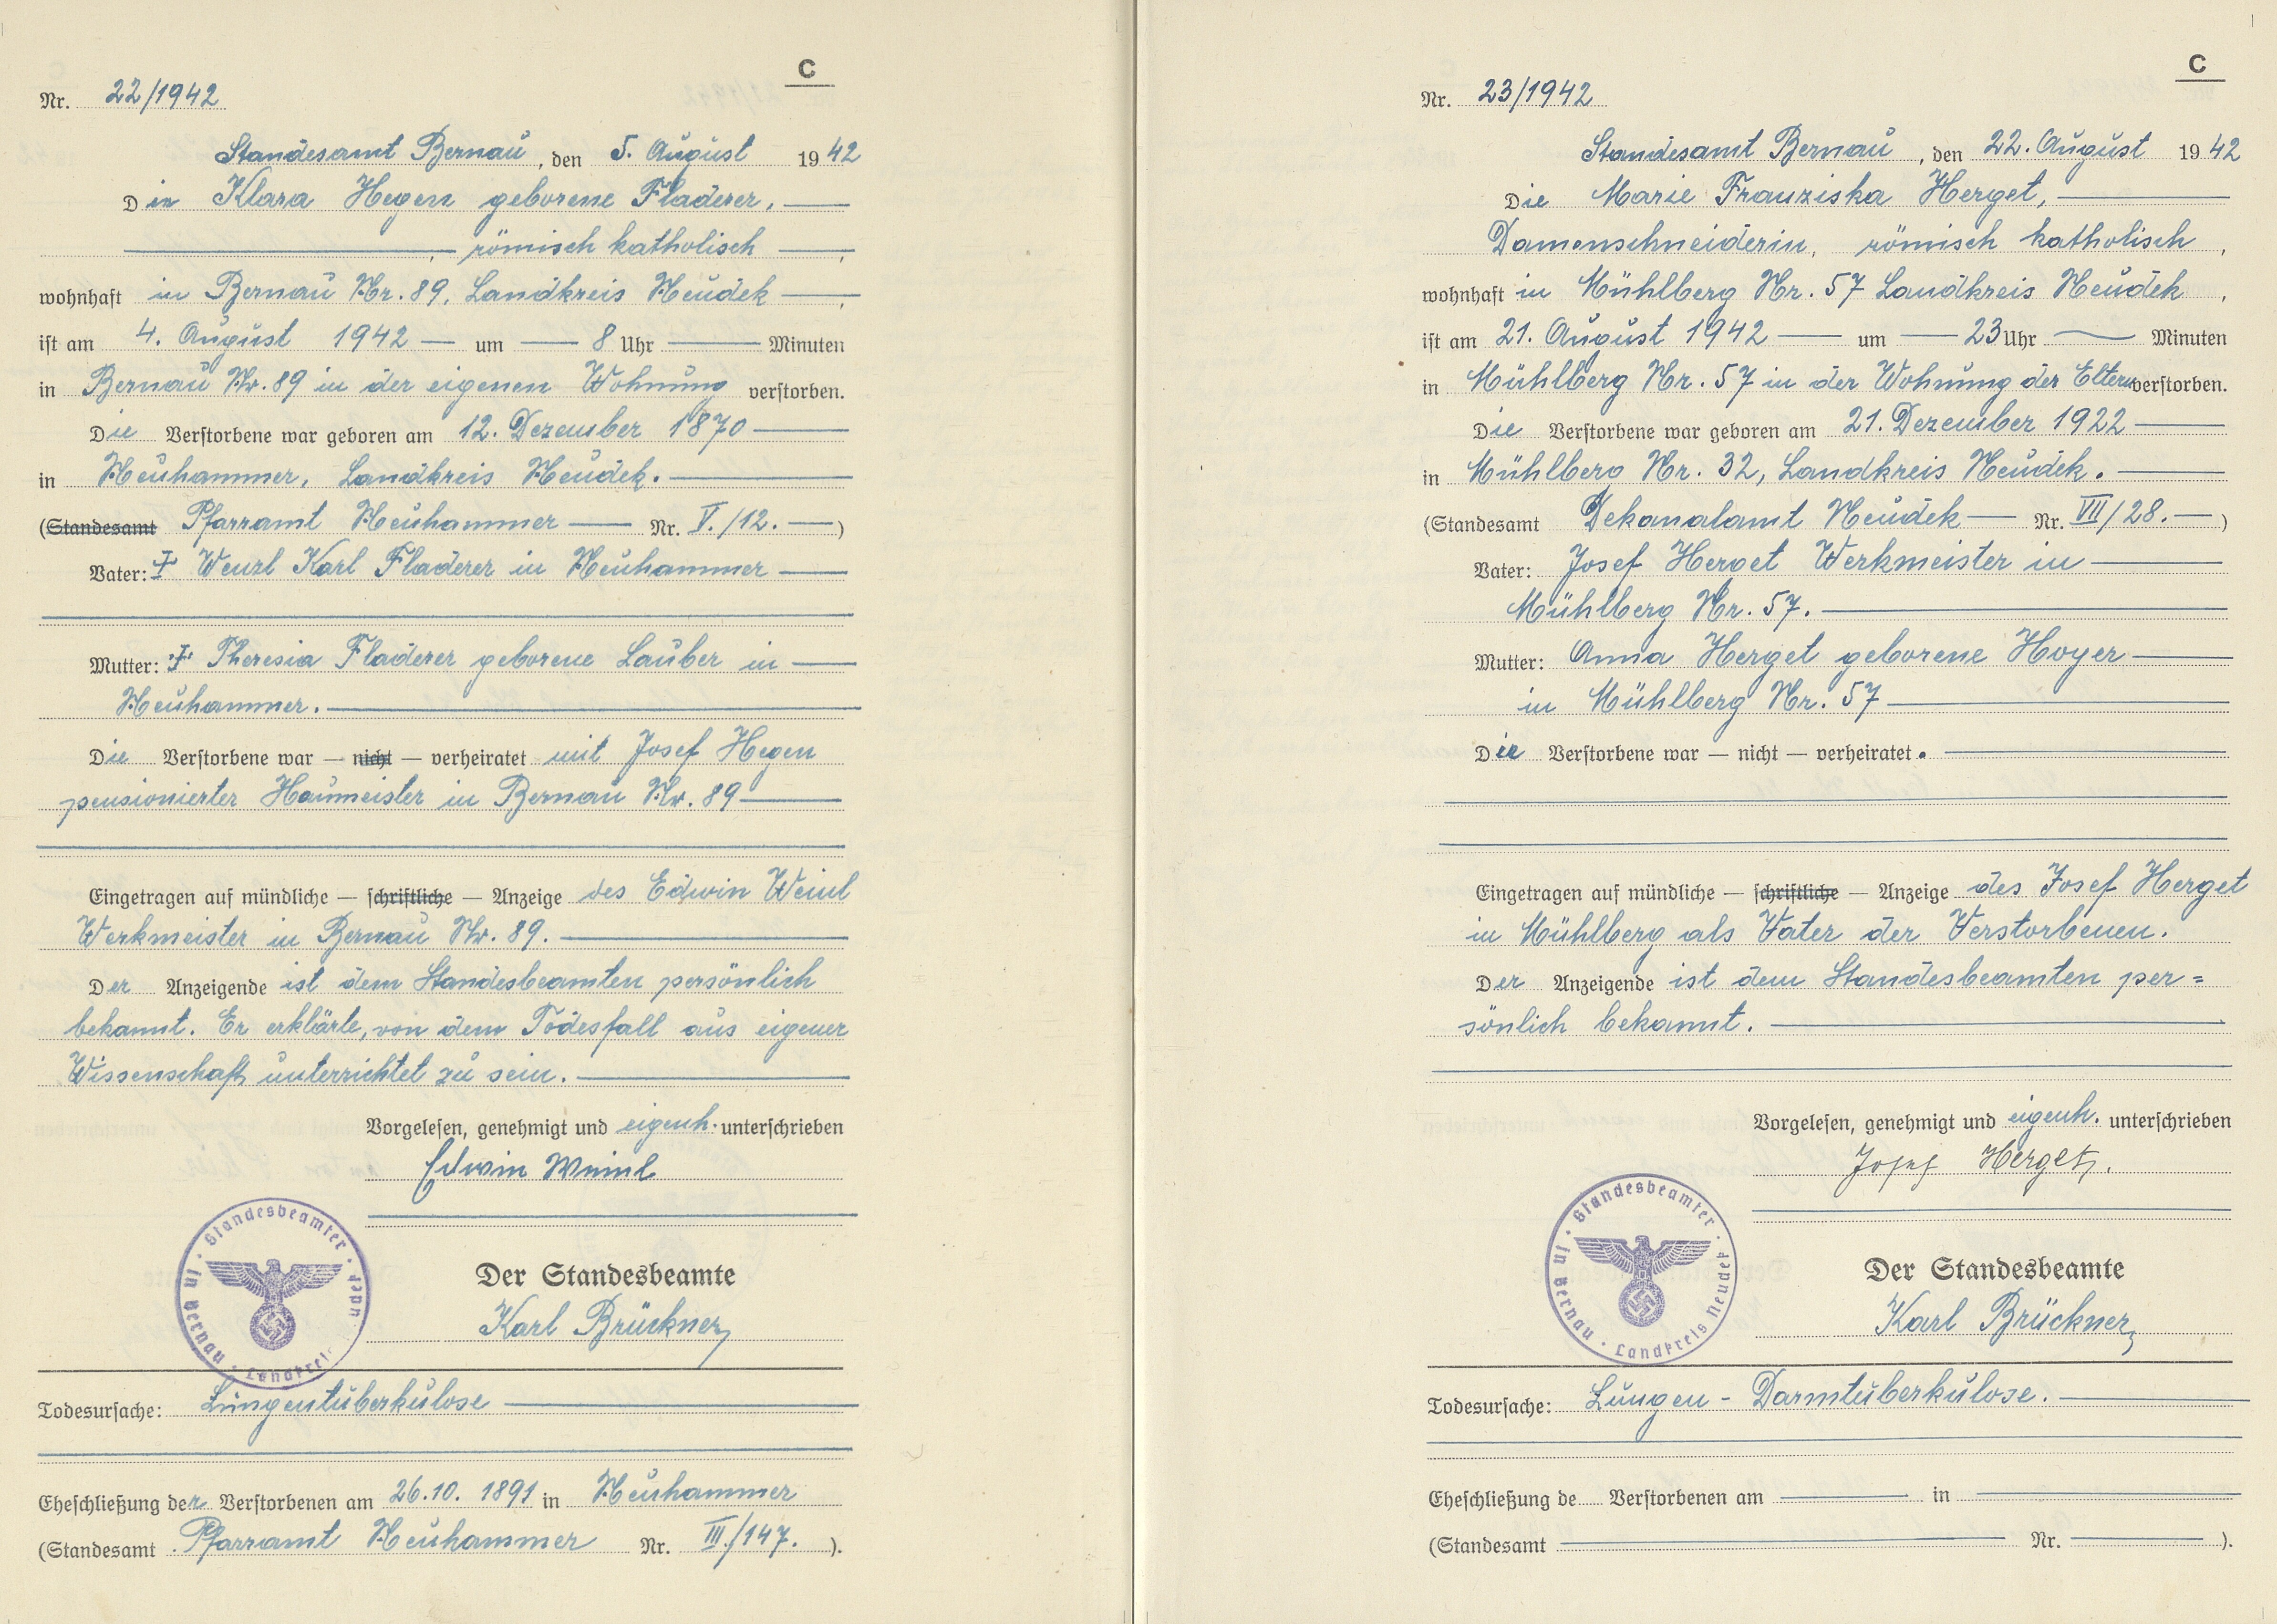 C
Nr. 22/1942
Standesamt Bernau, den 5. August 1942
Die Klara Hegen geborene Fladerer,
, römisch katholisch ,
wohnhaft in Bernau Nr. 89, Landkreis Neudek ,
ist am 4. August 1942 um 8 Uhr Minuten
in Bernau Nr. 89 in der eigenen Wohnung verstorben.
Die Verstorbene war geboren am 12. Dezember 1870
in Neuhammer, Landkreis Neudek.
(Standesamt Pfarramt Neuhammer Nr. V./12. )
Vater: † Wenzl Karl Fladerer in Neuhammer
Mutter: † Theresia Fladerer geborene Lauber in
Neuhammer.
Die Verstorbene war — nicht — verheiratet mit Josef Hegen
pensionierter Haumeister in Bernau Nr. 89
Eingetragen auf mündliche — schriftliche — Anzeige des Edwin Weinl
Werkmeister in Bernau Nr. 89.
Der Anzeigende ist dem Standesbeamten persönlich
bekannt. Er erklärte, von dem Todesfall aus eigener
Wissenschaft unterrichtet zu sein.
Vorgelesen, genehmigt und eigenh. unterschrieben
Edwin Weinl
Standesbeamter · in Bernau · Landkreis
Der Standesbeamte
Karl Brückner
Todesursache: Lungentuberkulose
Eheschließung der Verstorbenen am 26.10. 1891 in Neuhammer
(Standesamt Pfarramt Neuhammer Nr. III./147. ).
C
Nr. 23/1942
Standesamt Bernau, den 22. August 1942
Die Marie Franziska Herget,
Damenschneiderin, römisch katholisch ,
wohnhaft in Mühlberg Nr. 57 Landkreis Neudek ,
ist am 21. August 1942 um 23 Uhr Minuten
in Mühlberg Nr. 57 in der Wohnung der Eltern verstorben.
Die Verstorbene war geboren am 21. Dezember 1922
in Mühlberg Nr. 32, Landkreis Neudek.
(Standesamt Dekanalamt Neudek Nr. VII/28. )
Vater: Josef Herget Werkmeister in
Mühlberg Nr. 57.
Mutter: Anna Herget geborene Hoyer
in Mühlberg Nr. 57
Die Verstorbene war — nicht — verheiratet.
Eingetragen auf mündliche — schriftliche — Anzeige des Josef Herget
in Mühlberg als Vater der Verstorbenen.
Der Anzeigende ist dem Standesbeamten per=
sönlich bekannt.
Vorgelesen, genehmigt und eigenh. unterschrieben
Josef Herget.
Standesbeamter · in Bernau · Landkreis Neudek ·
Der Standesbeamte
Karl Brückner
Todesursache: Lungen - Darmtuberkulose.
Eheschließung de Verstorbenen am in
(Standesamt Nr. ).